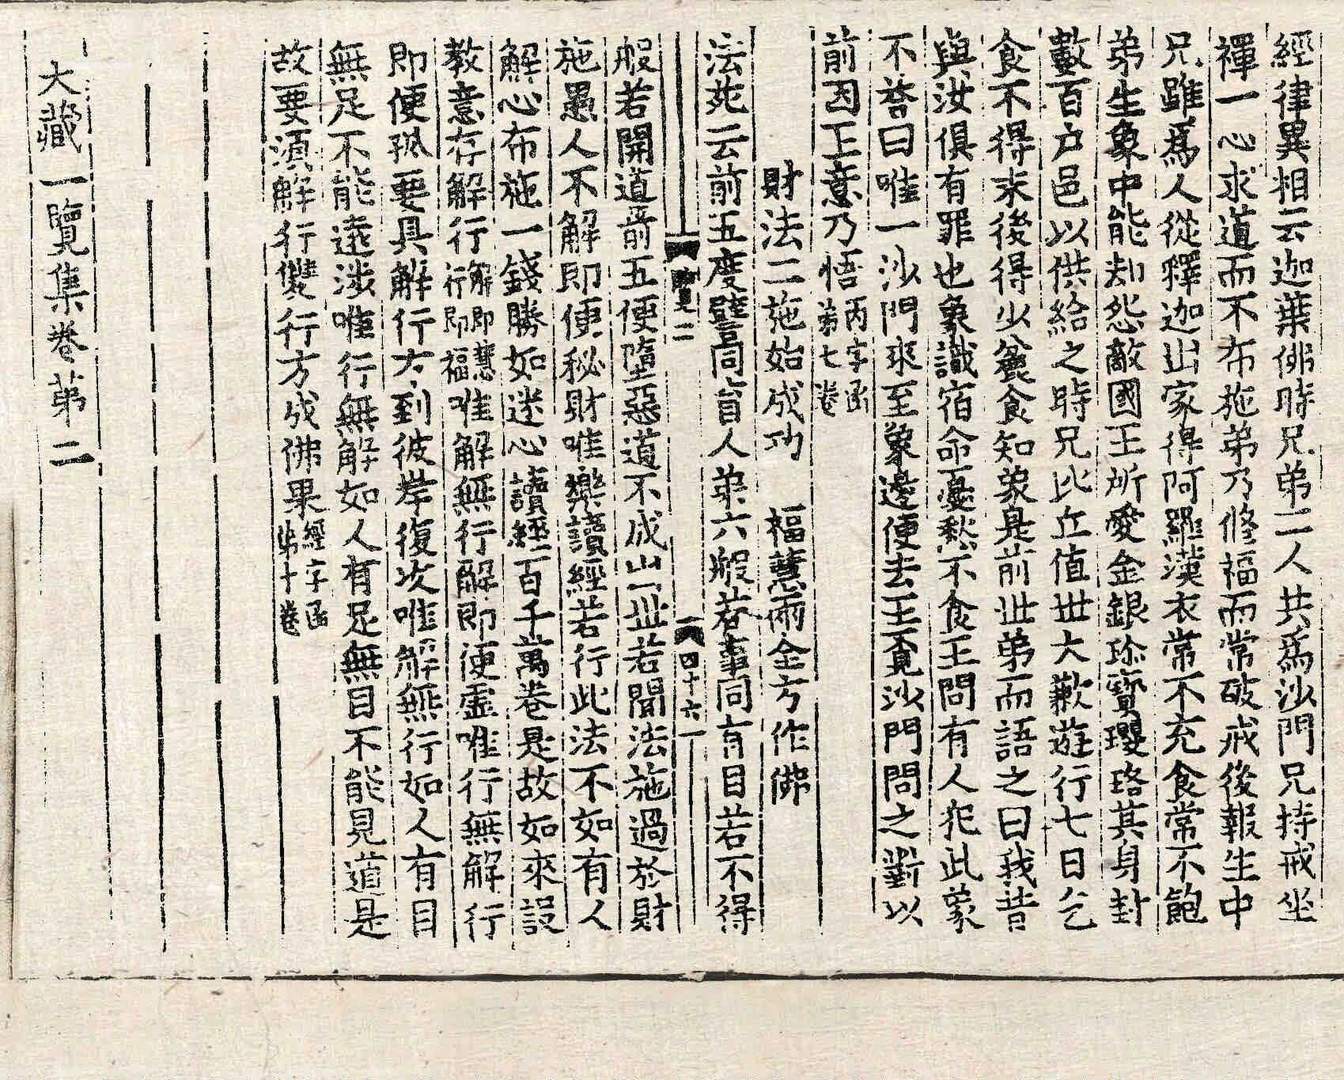 經律異相云迦葉佛時兄弟二人共爲沙門兄持戒坐
禪一心求道而不布施弟乃修福而常破戒後報生中
兄雖爲人從釋迦出家得阿羅漢衣常不充食常不飽
弟生象中能却怨敵國王所愛金銀珍寶瓔珞其身封
數百户邑以供給之時兄比丘值世大歉遊行七日乞
食不得末後得少麄食知象是前世弟而語之曰我昔
與汝俱有罪也象識宿命憂愁不食王問有人犯此蒙
不答曰唯一沙門來至象邊便去王覓沙門問之對以
前因王意乃悟丙字函第七卷
財法二施始成功 福慧兩全方作佛
法苑云前五度譬同盲人第六般若事同有目若不得
覽二 四十六
般若開道前五便墮惡道不成出世若聞法施過於財
施愚人不解即便秘財唯樂讀經若行此法不如有人
解心布施一錢勝如迷心讀經百千萬卷是故如來設
教意存解行解即慧行即福唯解無行解即便虛唯行無解行
即便孤要具解行方到彼岸復次唯解無行如人有目
無足不能遠涉唯行無解如人有足無目不能見道是
故要須解行雙行方成佛果經字函弟十卷
大藏一覽集卷第二